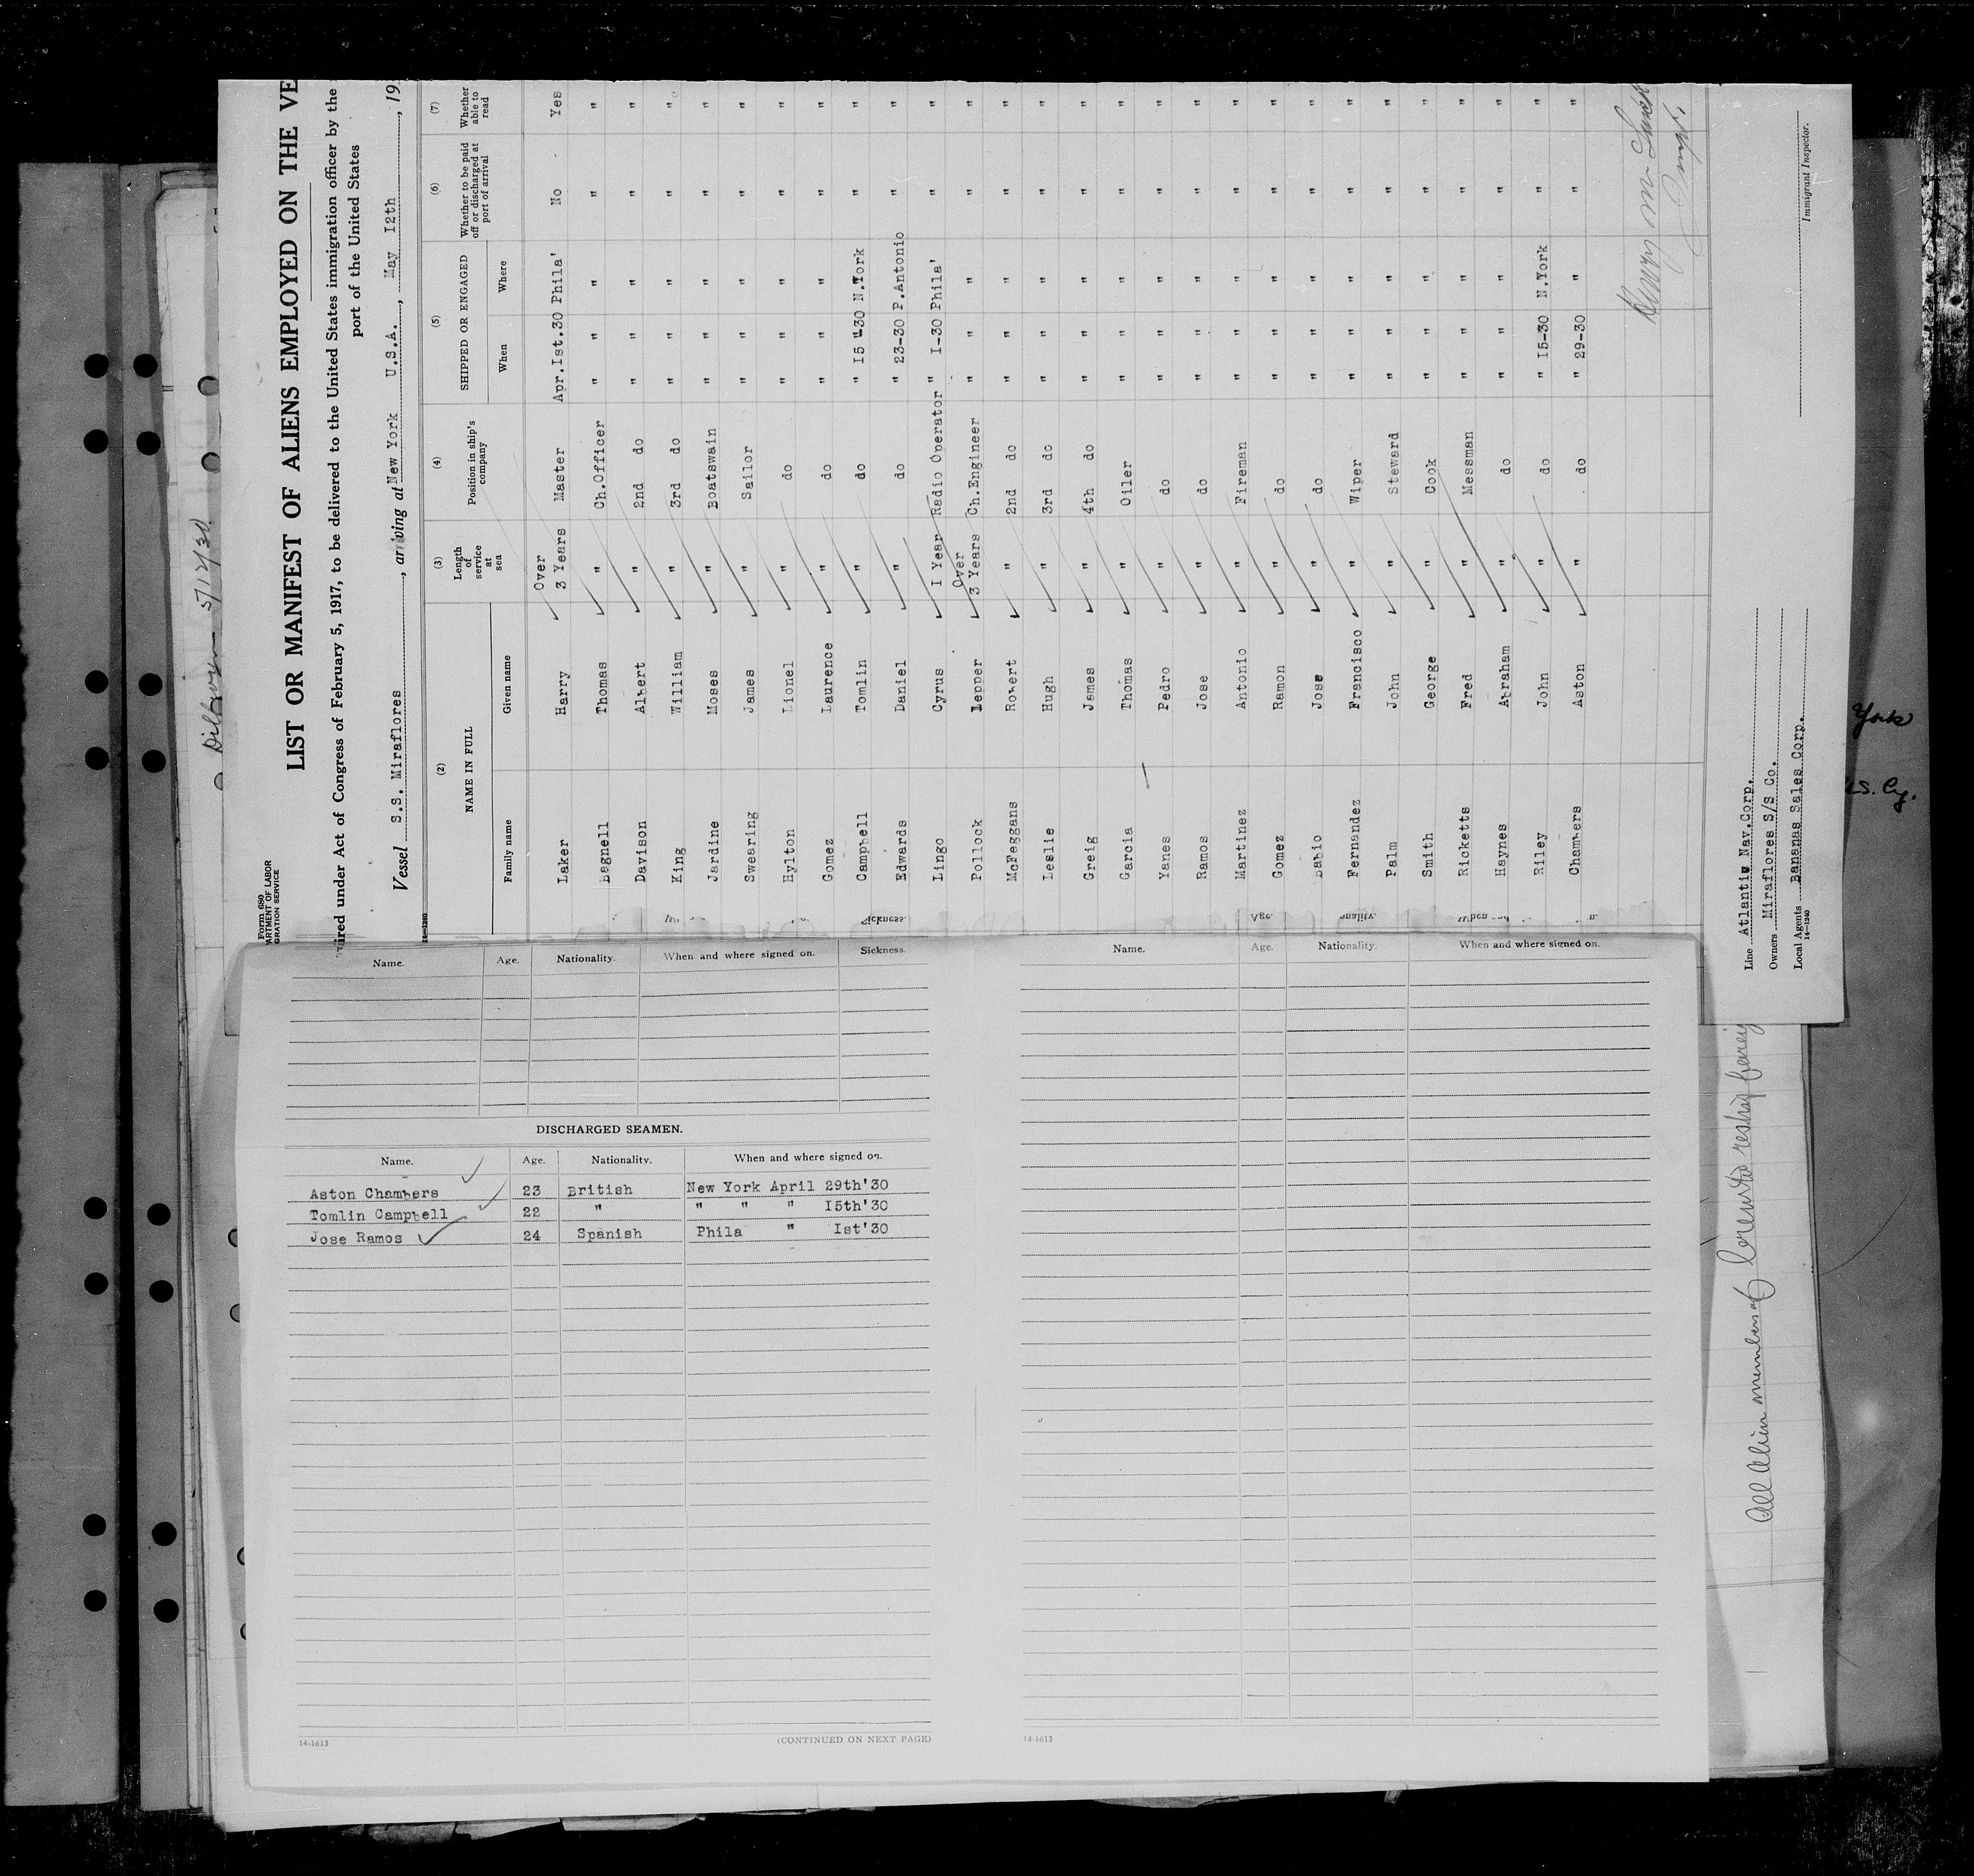 5/12/30
Form 680
ARTMENT OF LABOR
GRATION SERVICE
LIST OR MANIFEST OF ALIENS EMPLOYED ON THE VE
ired under Act of Congress of February 5, 1917, to be delivered to the United States immigration officer by the
port of the United States
Vessel S.S. Miraflores, arriving at New York U.S.A., May 12th, 19
14-1240
(2) (3) (4) (5) (6) (7)
NAME IN FULL Length of service at sea Position in ship's company SHIPPED OR ENGAGED Whether to be paid off or discharged at port of arrival Whether able to read
Family name Given name When Where
Laker Harry Over 3 Years Master Apr.Ist.30 Phila' No Yes
Bagnell Thomas " Ch.Officer " " " " "
Davison Albert " 2nd do " " " " "
King William " 3rd do " " " " "
Jardine Moses " Boatswain " " " " "
Swearing James " Sailor " " " " "
Hylton Lionel " do " " " " "
Gomez Laurence " do " " " " "
Campbell Tomlin " do " I5"-30 N.York " "
Edwards Daniel " do " 23-30 P.Antonio " "
Lingo Cyrus I Year Radio Operator " I-30 Phila' " "
Pollock Lepper Over 3 Years Ch.Engineer " " " " "
McFeggans Robert " 2nd do " " " " "
Leslie Hugh " 3rd do " " " " "
Greig James " 4th do " " " " "
Garcia Thomas " Oiler " " " " "
Yanes Pedro " do " " " " "
Ramos Jose " do " " " " "
Martinez Antonio " Fireman " " " " "
Gomez Ramon " do " " " " "
Babio Jose " do " " " " "
Fernandez Francisco " Wiper " " " " "
Palm John " Steward " " " " "
Smith George " Cook " " " " "
Ricketts Fred " Messman " " " " "
Haynes Abraham " do " " " " "
Riley John " do " I5-30 N.York " "
Chambers Aston " do " 29-30 " " "
Line Atlantic Nav.Corp.
Owners Miraflores S/S Co.
Local Agents Bananas Sales Corp.
14-1240
Immigrant Inspector.
York
S. Cy.
All Alien members of
Sickness. Age.
Name. Age. Nationality. When and where signed on. Sickness.
DISCHARGED SEAMEN.
Name. Age. Nationality. When and where signed on.
Aston Chambers 23 British New York April 29th'30
Tomlin Campbell 22 " " " " I5th'30
Jose Ramos 24 Spanish Phila " Ist'30
14-1613 (CONTINUED ON NEXT PAGE)
Name. Age. Nationality. When and where signed on.
14-1613